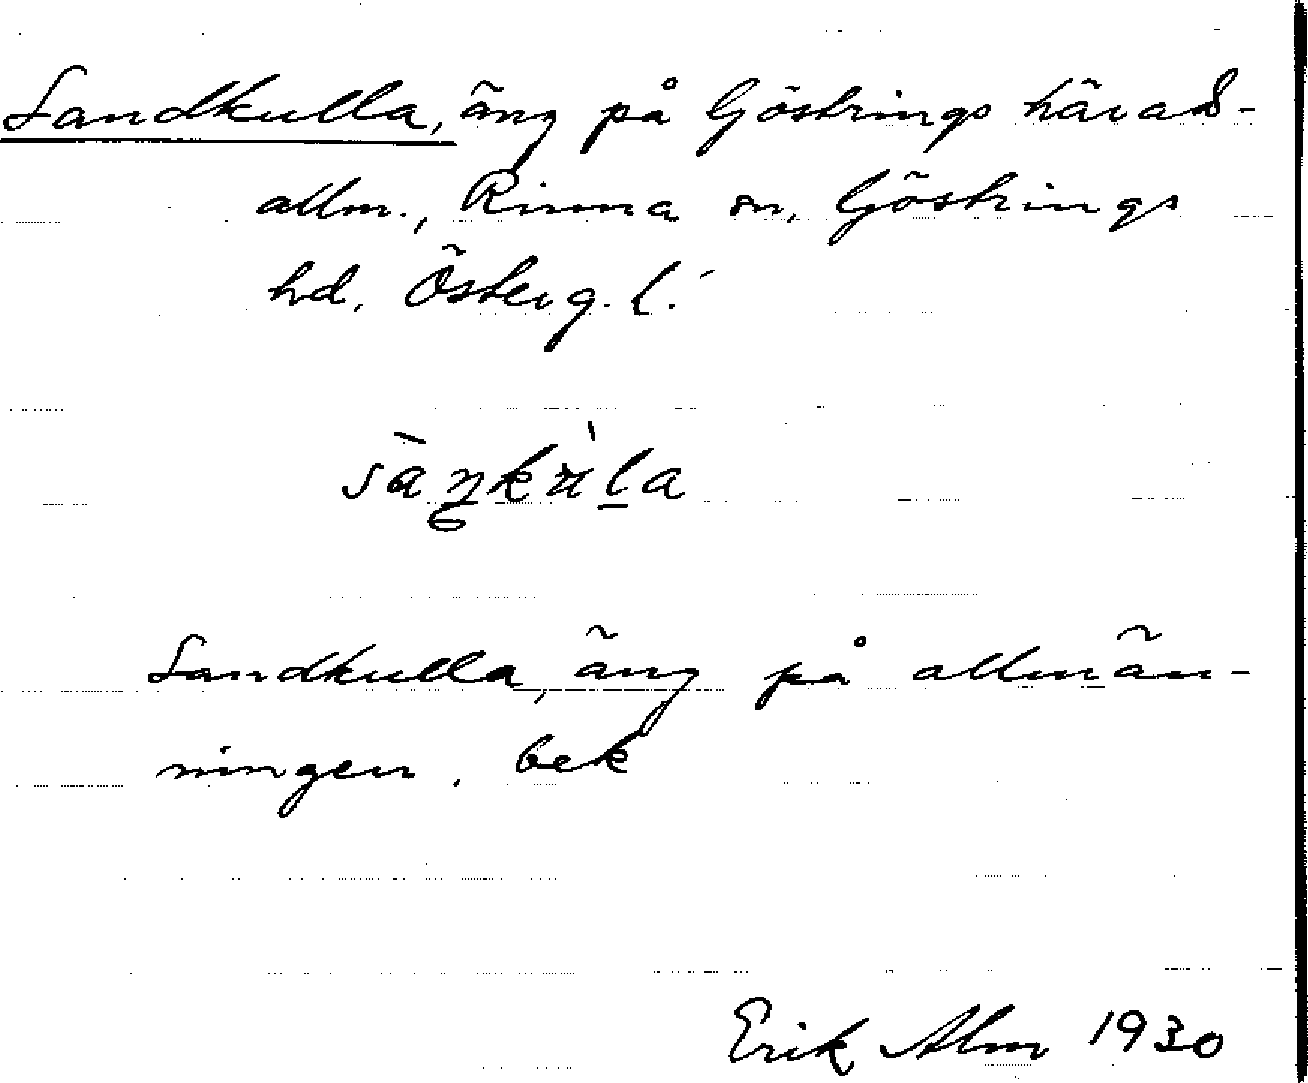 Sandkulla, äng på Göstrings härads-
allm., Rinna sn, Göstrings
hd. Österg. l.
Sandkulla, äng på allmän-
ningen. bek
Erik Alm 1930